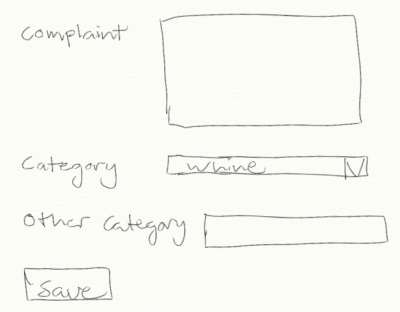 Complaint
Category whine
Other Category
Save